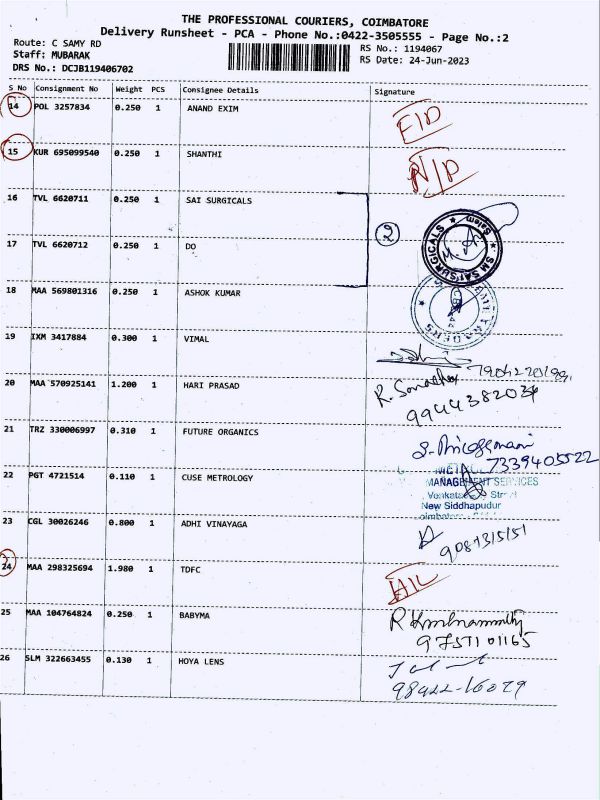 THE PROFESSIONAL COURIERS, COIMBATORE
Delivery Runsheet - PCA - Phone No.:0422-3505555 - Page No.:2
Route: C SAMY RD
RS No.: 1194067
Staff: MUBARAK
RS Date: 24-Jun-2023
DRS No.: DCJB119406702
S No Consignment No Weight PCS Consignee Details Signature
14 POL 3257834 0.250 1 ANAND EXIM
15 KUR 695099540 0.250 1 SHANTHI N/D
16 TVL 6620711 0.250 1 SAI SURGICALS
2
SM SAI SURGICALS
Salem
17 TVL 6620712 0.250 1 DO
18 MAA 569801316 0.250 1 ASHOK KUMAR
19 IXM 3417884 0.300 1 VIMAL
20 MAA 570925141 1.200 1 HARI PRASAD
9944382034
21 TRZ 330006997 0.310 1 FUTURE ORGANICS
7339405522
22 PGT 4721514 0.110 1 CUSE METROLOGY
MANAGEMENT SERVICES
New Siddhapudur
23 CGL 30026246 0.800 1 ADHI VINAYAGA
24 MAA 298325694 1.980 1 TDFC
25 MAA 104764824 0.250 1 BABYMA
26 SLM 322663455 0.130 1 HOYA LENS